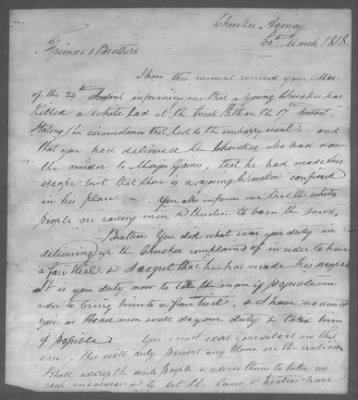 Cherokee Agency
30th March 1818
Friends & Brothers
I have this moment received your
of the 24th Instant informing me that a young Cherokee has
killed a white lad at the Creek Path on the 17th Instant,
stating the circumstances that led to the unhappy event & and
that you had delivered the Cherokee who had done
the murder to Major Gaines, that he had made his
escape; but that there is a young Cherokee confined
in his place — You also inform me that the white
People are raising men & threaten to burn the Town,
Brothers You did what was your duty in
delivering up the Cherokee complained of in order to have
a fair trial & I regret that he has made his escape
It is your duty now to take the man if possible in
order to bring him to a fair trial, & I have no doubt
you as Head men will do your duty & take him
if possible You must exert yourselves in this
case. This will only prevent any blame on the nation
I shall address the white people & advise them to take no
rash measures & to let the Laws & treaties have